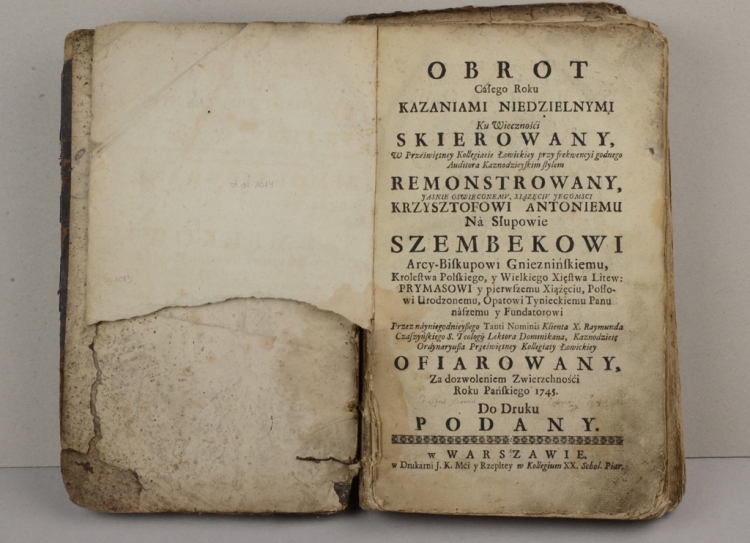 OBROT
Całego Roku
KAZANIAMI NIEDZIELNYMI
Ku Wiecznośći
SKIEROWANY,
W Przeświętney Kollegiacie Łowickiey przy frekwencyi godnego
Auditora Kaznodzieyſkim ſtylem
REMONSTROWANY,
JASNIE OSWIECONEMU, XIĄZĘCIU JEGOMSCI
KRZYSZTOFOWI ANTONIEMU
Ná Słupowie
SZEMBEKOWI
Arcy-Biſkupowi Gniezninſkiemu,
Kroleſtwa Polſkiego, y Wielkiego Xięſtwa Litew:
PRYMASOWI y pierwſzemu Xiążęciu, Poſło-
wi Urodzonemu, Opatowi Tynieckiemu Panu
nászemu y Fundatorowi
Przez náyniegodnieyſzego Tanti Nominis Klienta X. Raymunda
Czáſzyńſkiego S. Teologij Lektora Dominikana, Kaznodzieię
Ordynaryuſza Przeświętney Kollegiaty Łowickiey
OFIAROWANY,
Za dozwoleniem Zwierzchnośći
Roku Pańſkiego 1745.
Do Druku
PODANY.
w WARSZAWIE.
w Drukarni J. K. Mći y Rzepltey w Kollegium XX. Schol. Piar.